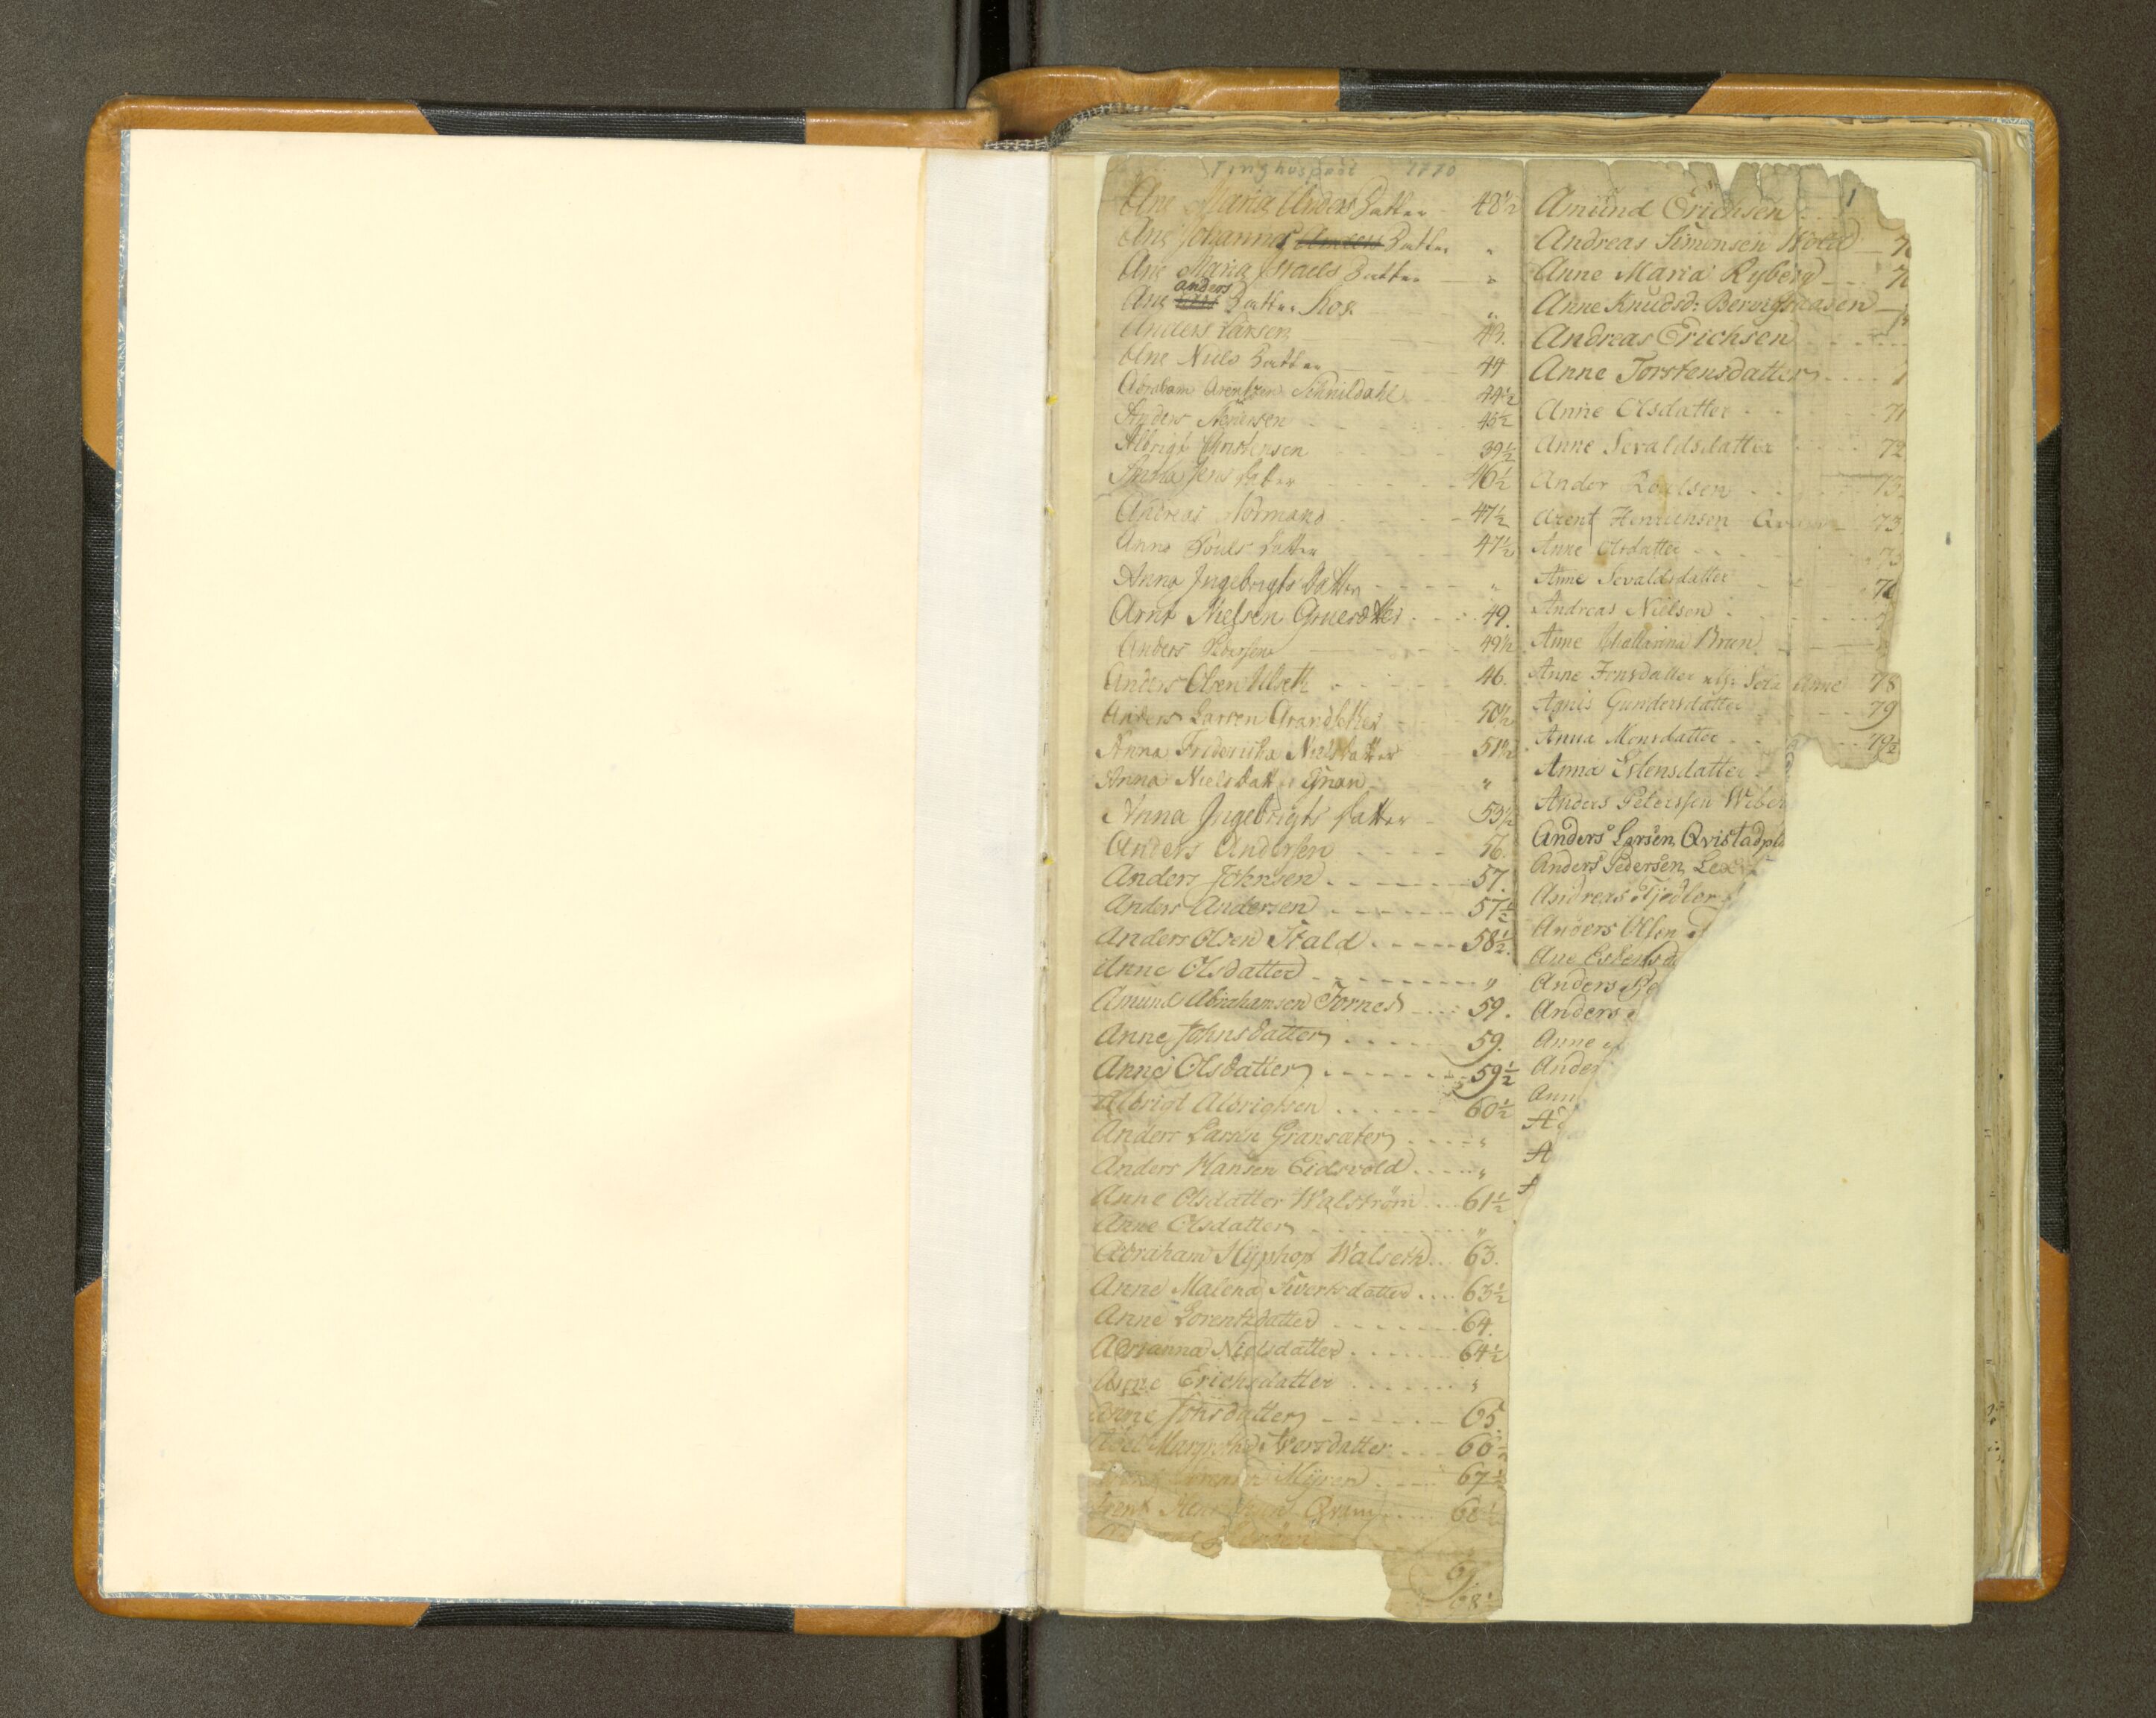 Tinghuspost 1770
Ane Maria Anders Datter 48½
Ane Johannes Anders Datter "
Ane Maria Israels Datter "
anders
Ane Datter hos "
Anders Larsen 43.
Ane Niels Datter 44
Abraham Arentzen Schnildahl 44½
Anders 45½
Albrigt Christensen 39½
Anna Jens datter 46½
Andreas Normand 47½
Anne Pouls Datter 47½
Anna Ingebrigts Datter "
Arnt Nielsen 49.
Anders Pedersen 49½
Anders Olsen Ulseth 46.
Anders Larsen 50½
Anna Fridericka Nielsdatter 51½
Anna Niels Datter Gran "
Anna Ingebrigts Datter 53½
Anders Andersen 56.
Anders Johnsen 57.
Anders Andersen 57½
Anders Olsen Stald 58½.
Anne Olsdatter "
Amund Abrahamsen Fornes 59.
Anne Johnsdatter 59.
Anne Olsdatter 59½
Albrigt Albrigtsen 60½
Anders Larsen Gransater "
Anders Hansen Eidsvold "
Anne Olsdatter Walstrøm 61½
Anne Olsdatter "
Abraham Hyphof Walseth 63.
Anne Malena Sivertsdatter 63½
Anne Lorentzdatter 64.
Adrianna Nielsdatter 64½
Anne Erichsdatter "
Anne Johsdatter 65.
Margrethe Iversdatter 66½
Myren 67½
Arent Qvam 68½
68½
1
Amund Erichsen
Andreas Simonsen Wold 7
Anne Maria Ryberg 7
Anne Knudsd:
Andreas Erichsen
Anne Torstensdatter 7
Anne Olsdatter 71
Anne Sevaldsdatter 72
Ander Roalsen 73
Arent Henrichsen Qvam 73
Anne Olsdatter 73
Anne Sevaldsdatter 76
Andreas Nielsen 7
Anne Chatharina Brun
Anne Jonsdatter Anne 78
Agnis Gundersdatter 79
Anna Monsdatter 79½
Anna Estensdatter
Anders Peterssen Weber
Anders Larsen, Qvistadpl
Anders Pedersen, Lex
Andreas Tjedlor
Anders Olsen
Ane Estensd
Anders Pe
Anders
Anne
Ander
Ann
A
A